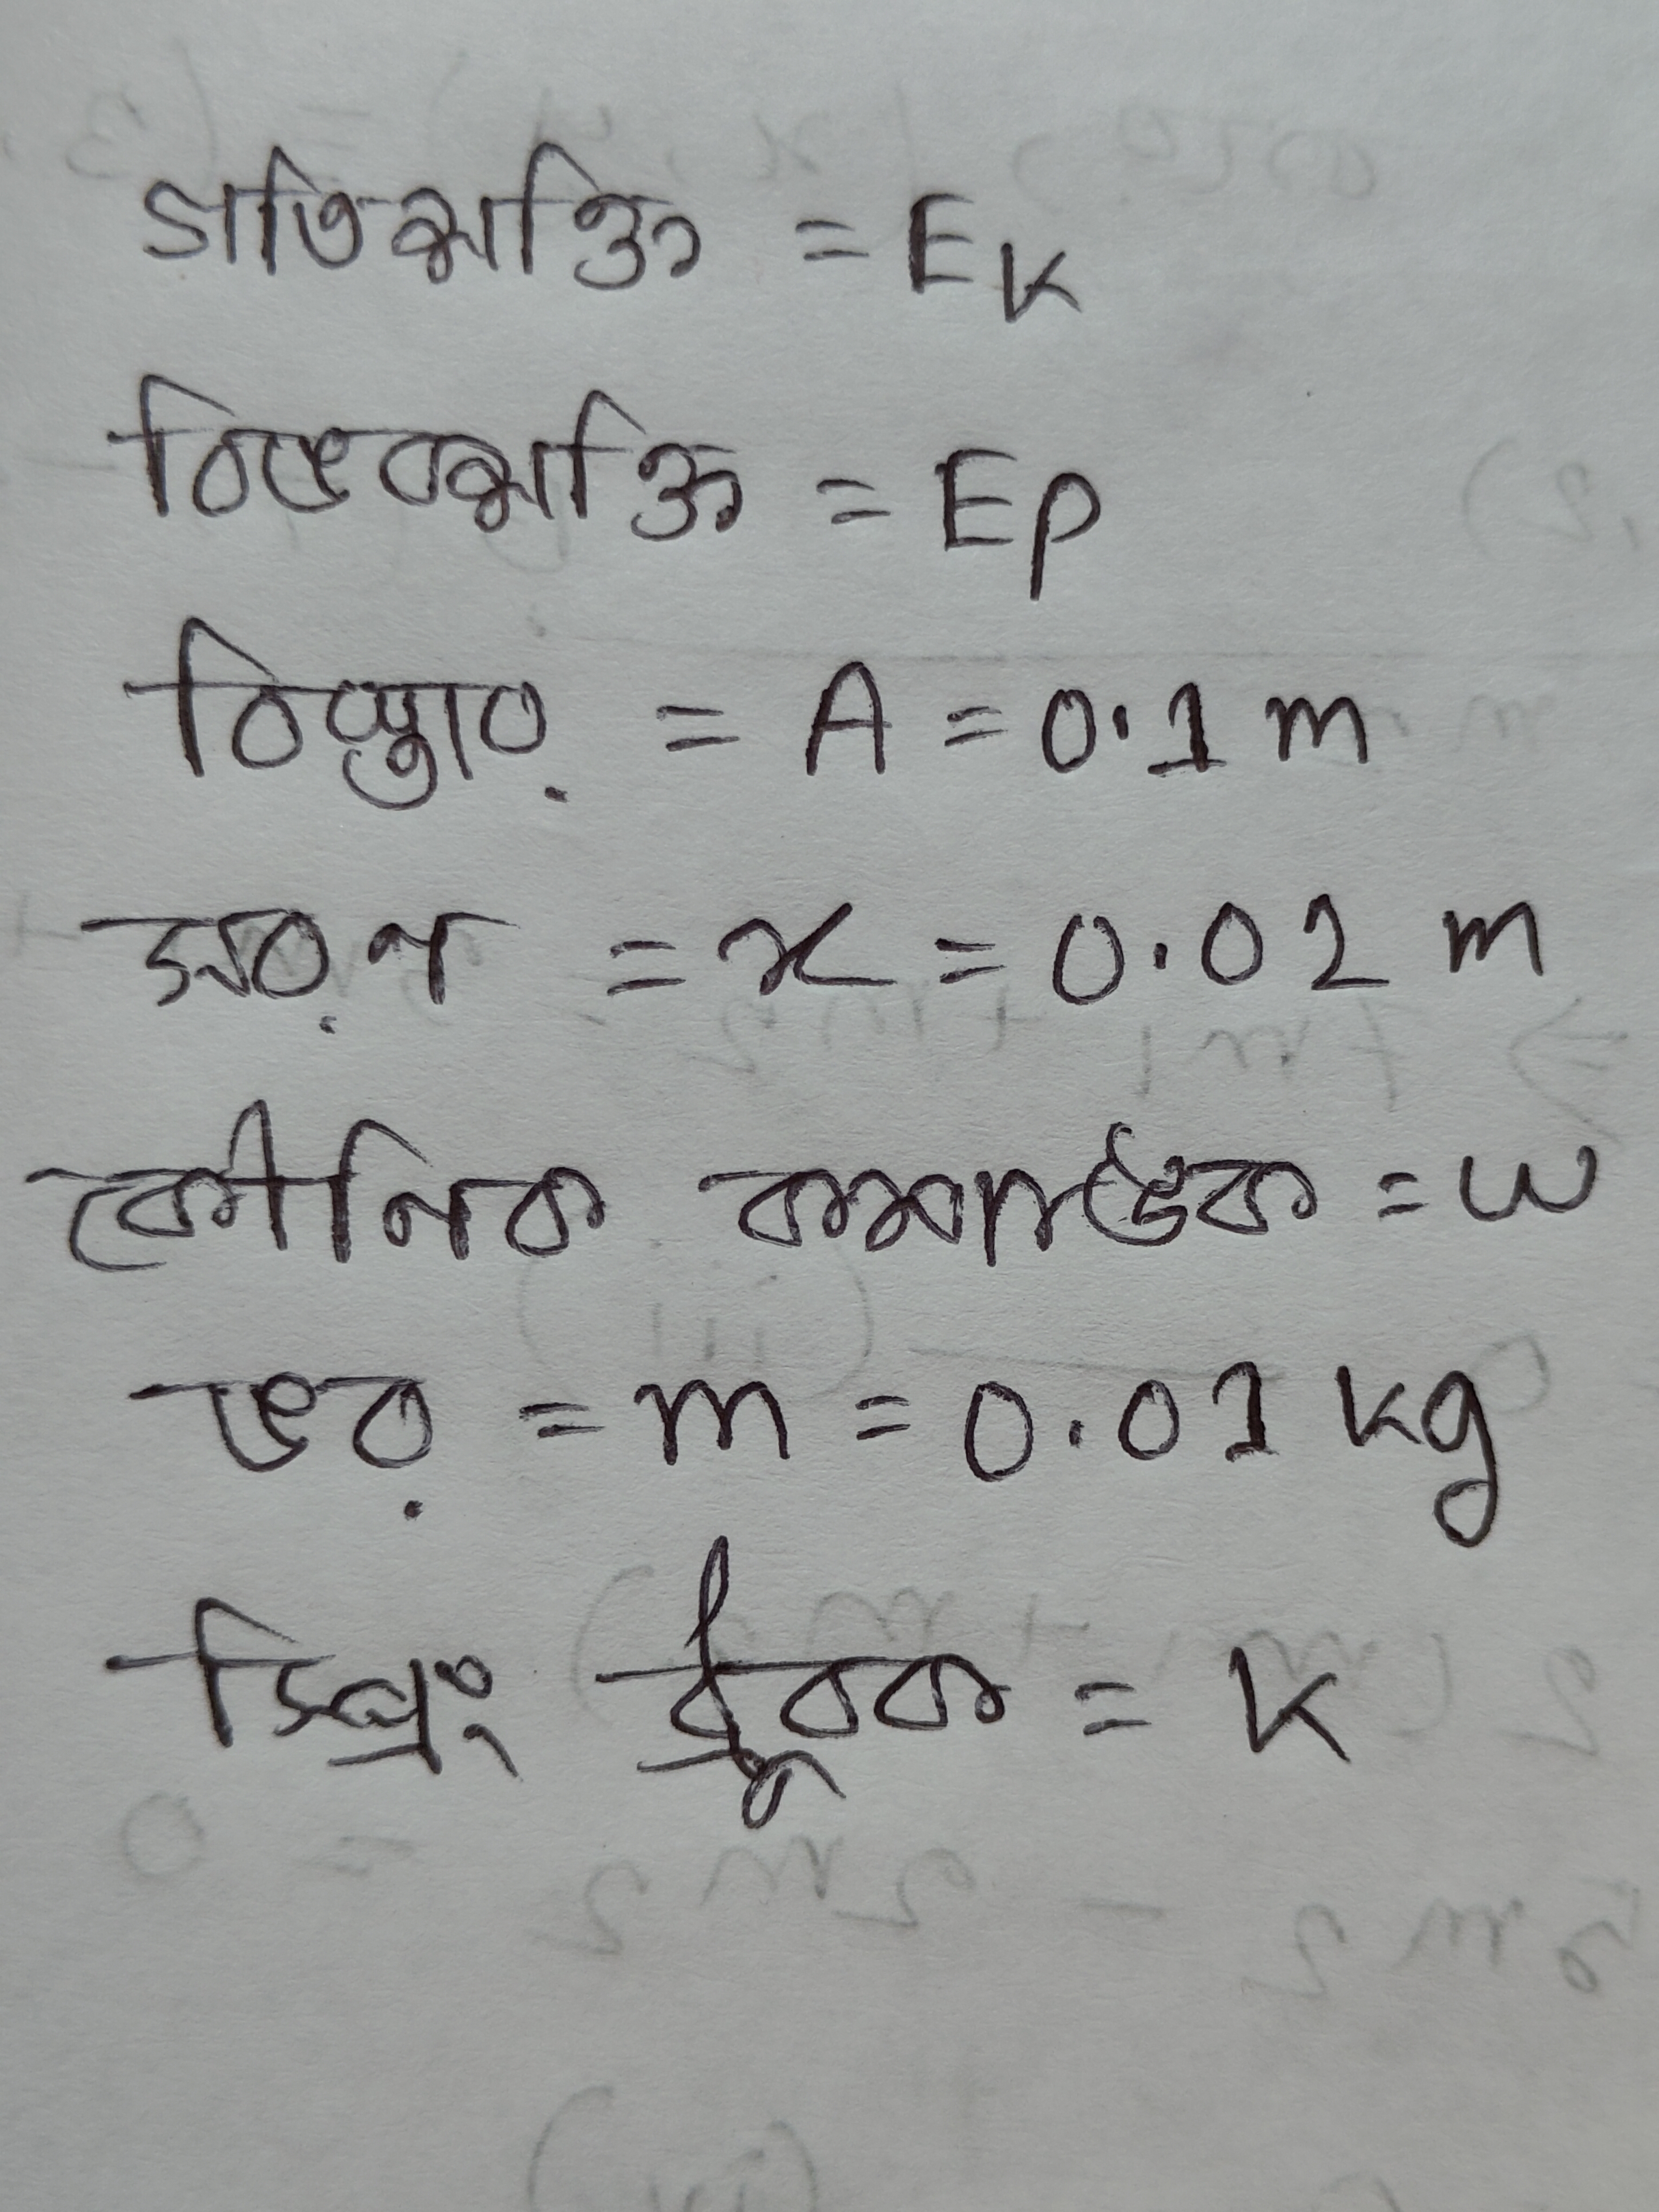 গতিশক্তি = EK
বিভবশক্তি = EP
বিস্তার = A = 0.1 m
সরণ = x = 0.02 m
কৌনিক কম্পাঙ্ক = ω
ভর = m = 0.01 kg
স্প্রিং ধ্রূবক = K